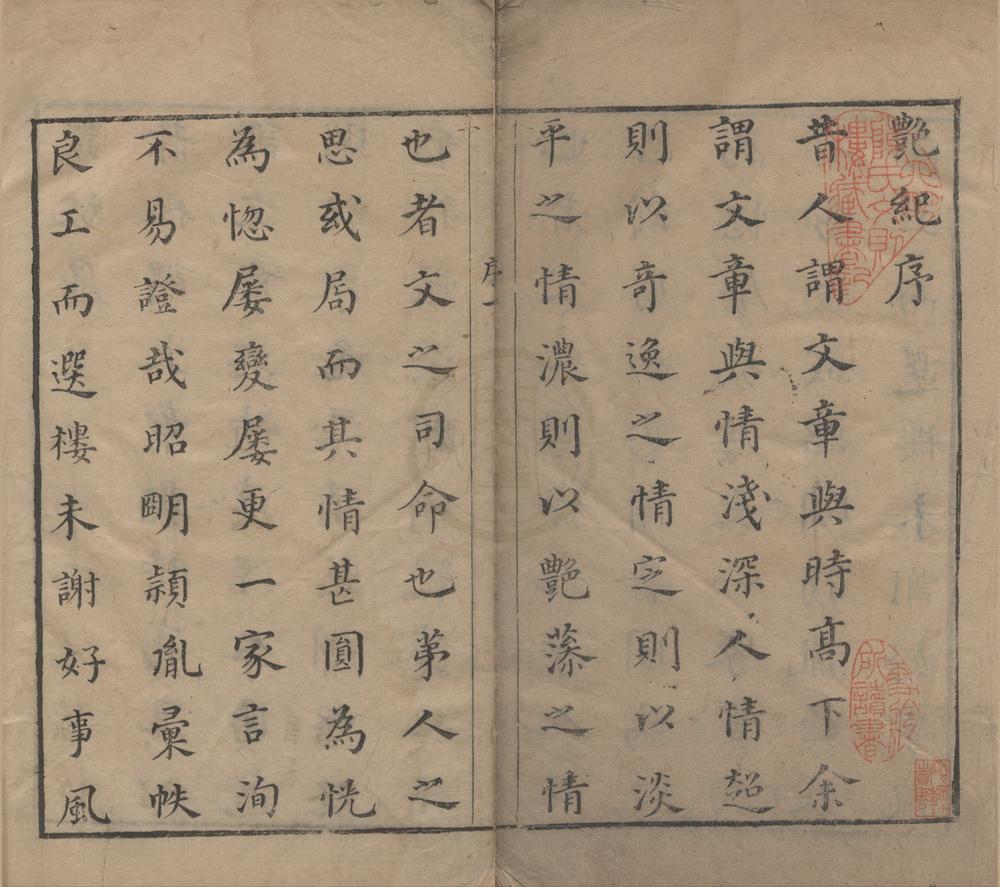 艷紀序
昔人謂文章與時髙下余
謂文章與情淺深人情超
則以竒逸之情定則以淡
平之情濃則以艷藻之情
序一
也者文之司命也苐人之
思或局而其情甚圓為恍
為惚屢變屢更一家言洵
不易證哉昭明頴胤彙帙
良工而選樓未謝好事風